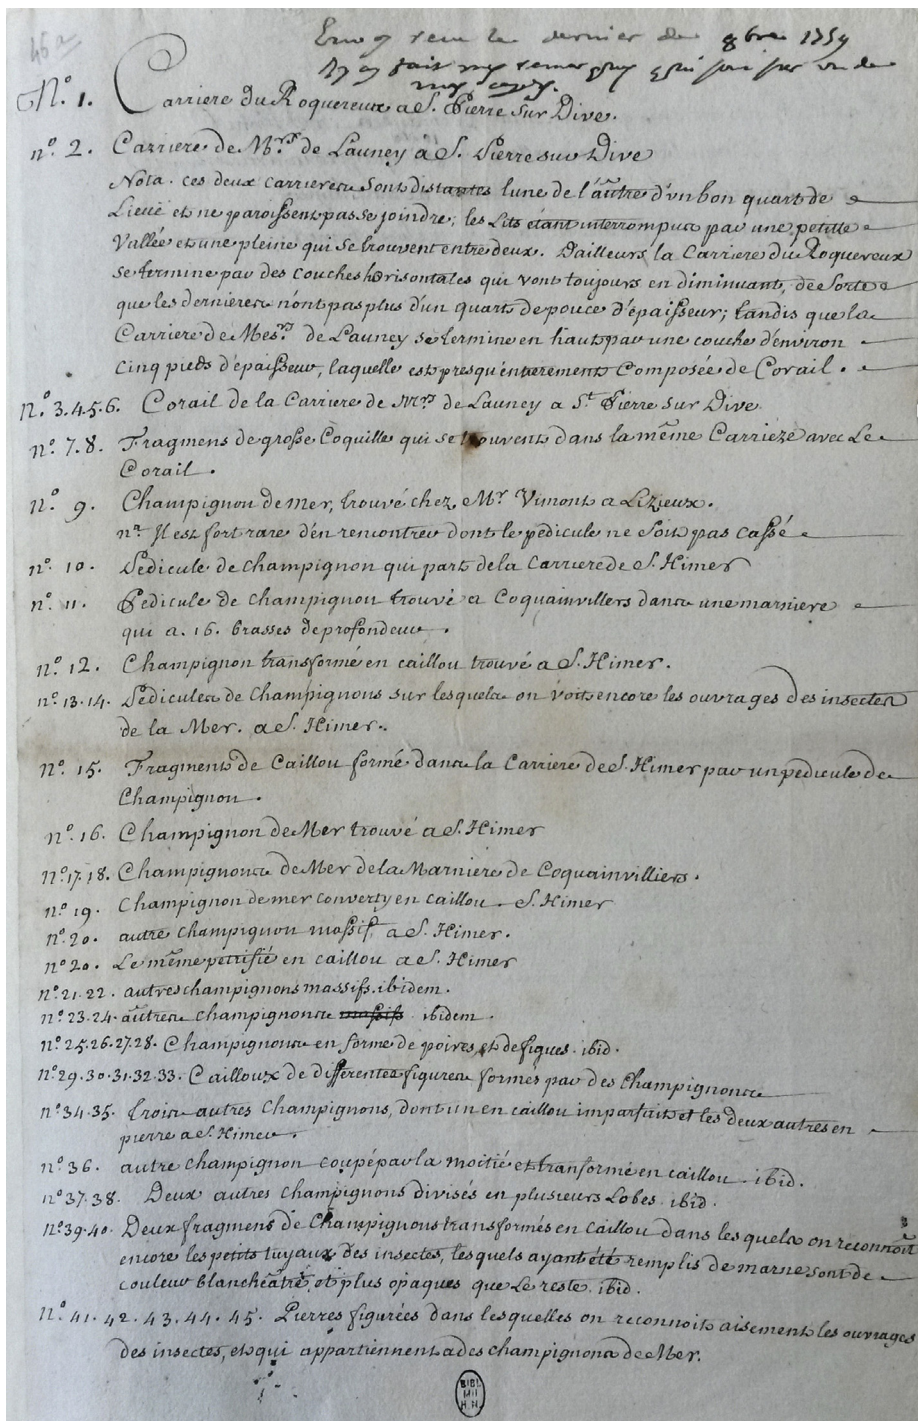 46a
Envoy receu le dernier de 8bre 1759
N.o 1. Carriere du Roquereux a S. Pierre sur Dive.
n.o 2. Carriere de M.rs de Launey à S. Pierre sur Dive
Nota. ces deux carrieres sont distantes l'une de l'autre d'un bon quart de
Lieuë et ne paroissent pas se joindre, les Lits étant interrompus par une petitte
Vallée et une pleine qui se trouvent entre deux. D'ailleurs, la Carriere du Roquereux
se termine par des couches horisontales qui vont toujours en diminuant, de sorte
que les dernieres n'ont pas plus d'un quart de pouce d'épaisseur; tandis que la
Carriere de Mes.rs de Launey se termine en haut par une couche d'environ
cinq pieds d'épaisseur, laquelle est presqu'entierement composée de Corail.
n.o 3.4.5.6. Corail de la Carriere de M.rs de Launey a S.t Pierre sur Dive
n.o 7.8. Fragmens de grosse Coquille qui se trouvent dans la même Carriere avec Le
Corail.
n.o 9. Champignon de mer, trouvé chez M.r Vimont a Lizieux.
n.a Il est fort rare d'en remontrer dont le pédicule ne soit pas cassé
n.o 10. Pedicule de champignon qui part de la carriere de S. Himer
n.o 11. Pédicule de champignon trouvé a Coquainvillers dans une marniere
qui a. 16. brasses de profondeur.
n.o 12. Champignon transformé en caillou trouvé a S. Himer.
n.o 13.14. Pedicules de Champignons sur lesquels on voit encore les ouvrages des insectes
de la Mer. a S. Himer.
n.o 15. Fragment de Caillou formé dans la Carriere de S. Himer par un pedicule de
Champignon.
n.o 16. Champignon de Mer trouvé a S. Himer
n.o 17.18. Champignons de Mer de la Marniere de Coquainvilliers.
n.o 19. Champignon de mer converty en caillou. S. Himer
n.o 20. autre champignon massif a S. Himer.
n.o 20. Le même pettrifié en caillou a S. Himer
n.o 21.22. autres champignons massifs. ibidem.
n.o 23.24. autres champignons massifs ibidem.
n.o 25.26.27.28. Champignons en forme de poires, et de figues. ibid.
n.o 29.30.31.32.33. Cailloux de differentes figures formés par des champignons
n.o 34.35. trois autres Champignons, dont un en caillou imparfait et les deux autres en
pierre a S. Himer.
n.o 36. autre champignon coupé par la moitié et transformé en caillou. ibid.
n.o 37.38. Deux autres champignons divisés en plusieurs Lobes. ibid.
n.o 39.40. Deux fragmens de Champignons transformés en caillou dans lesquels on reconnoit
encore les petits tuyaux des insectes, lesquels ayant été remplis de marne sont de
couleur blancheâtre, et plus opaques que Le reste. ibid.
n.o 41. 42. 43. 44. 45. Pierres figurées dans lesquelles on reconnoit aisement les ouvrages
des insectes, et qui appartiennent a des champignons de Mer.
BIBL
MII
H.N.